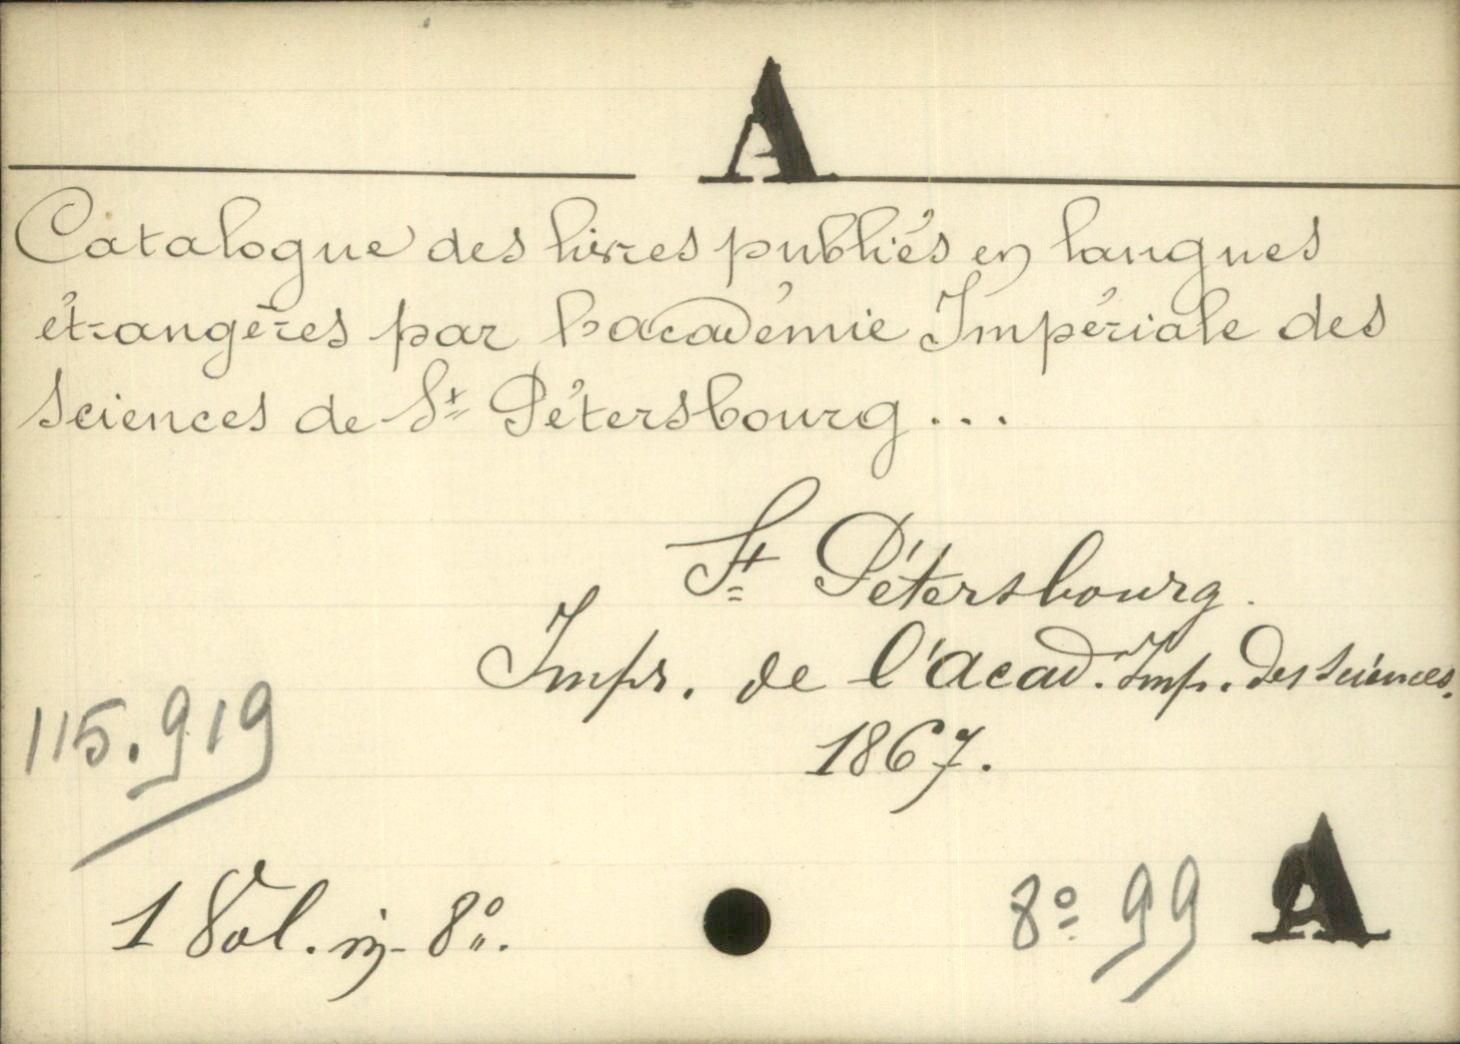 A
Catalogue des livres publiés en langues
étrangères par l'académie Impériale des
Sciences de St Pétersbourg...
St Pétersbourg.
Impr. de l'Acad. Imp. des Sciences.
1867.
115.919
1 Vol. in-8º.
8º 99 A